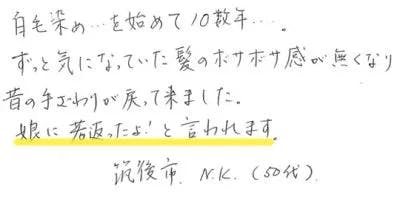 白毛染め…を始めて10数年…。
ずっと気になっていた髪のボサボサ感が無くなり
昔の手ざわりが戻って来ました。
娘に若返ったよ!と言われます。
筑後市. N.K. (50代).